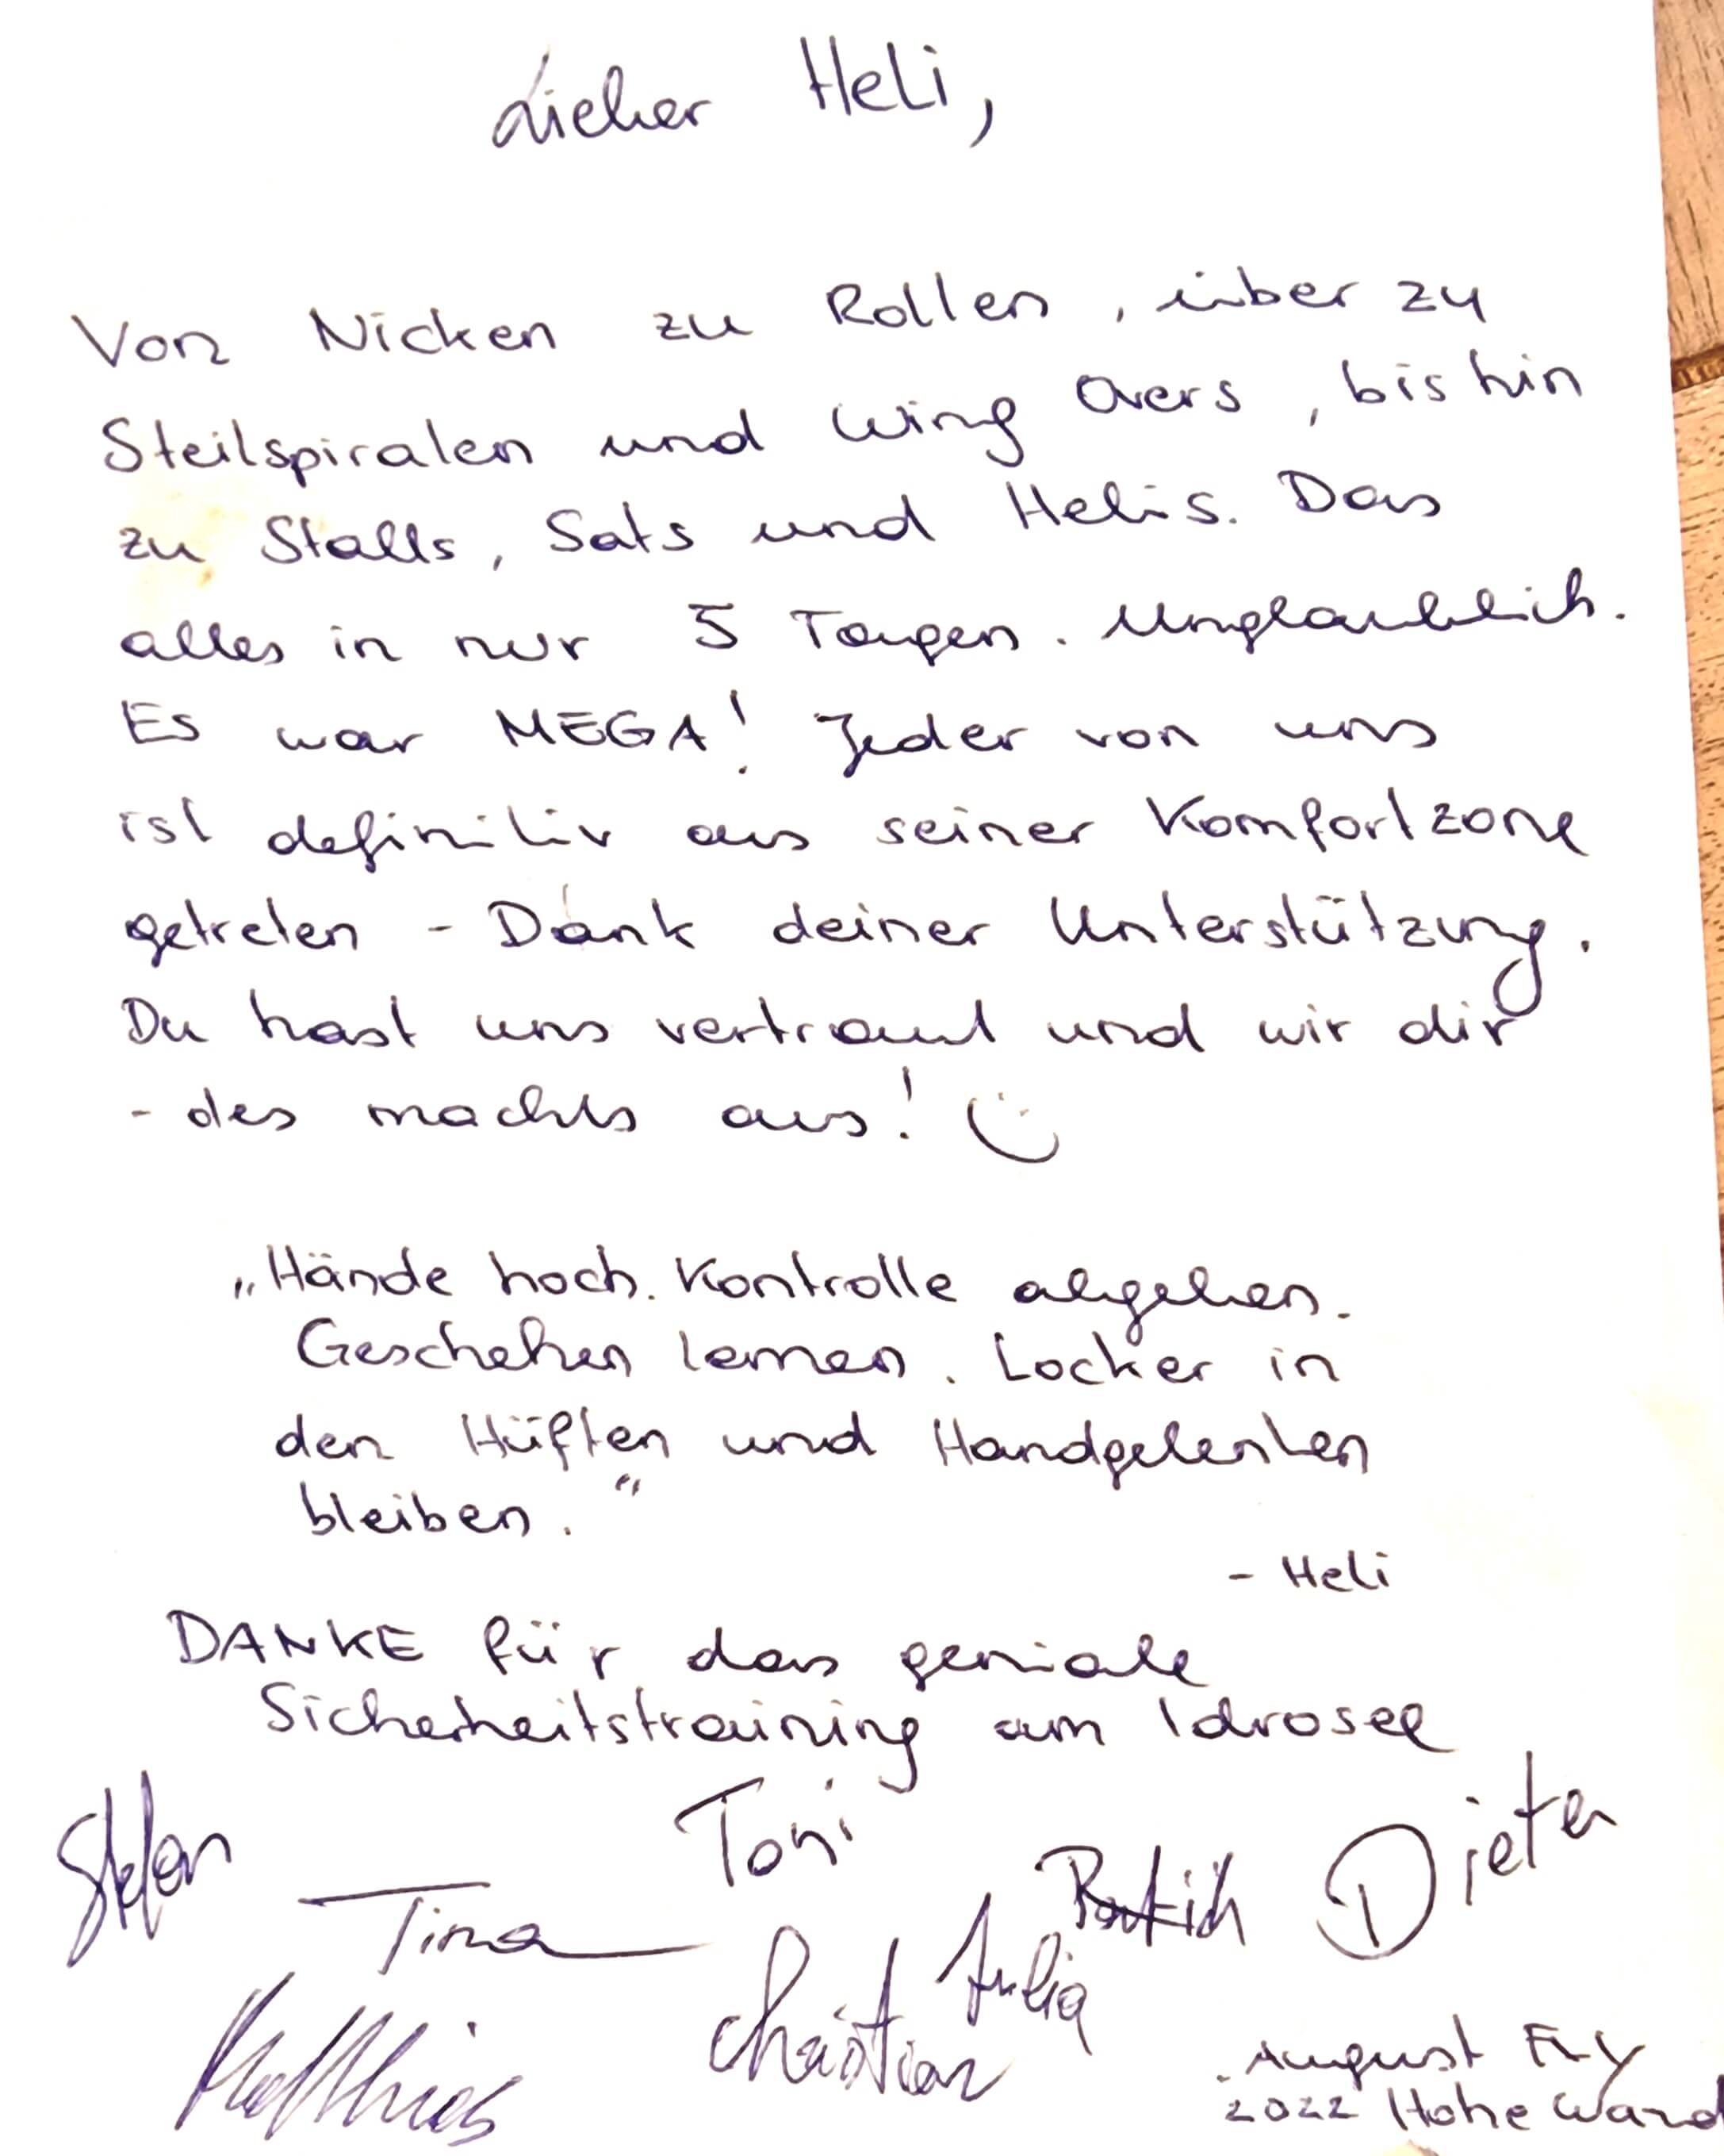 Lieber Heli,
Von Nicken zu Rollen, über zu
Steilspiralen und Wing Overs, bis hin
zu Stalls, Sats und Helis. Das
alles in nur 5 Tagen. Unglaublich.
Es war MEGA! Jeder von uns
ist definitiv aus seiner Komfortzone
getreten - Dank deiner Unterstützung.
Du hast uns vertraut und wir dir
- des machts aus! :)
„Hände hoch. Kontrolle abgeben.
Geschehen lernen. Locker in
den Hüften und Handgelenken
bleiben.“
- Heli
DANKE für das geniale
Sicherheitstraining am Idrosee
Stefan Toni Dieter
Tina Patrick
Matthias Christian Julia
August Fly
2022 Hohe Wand